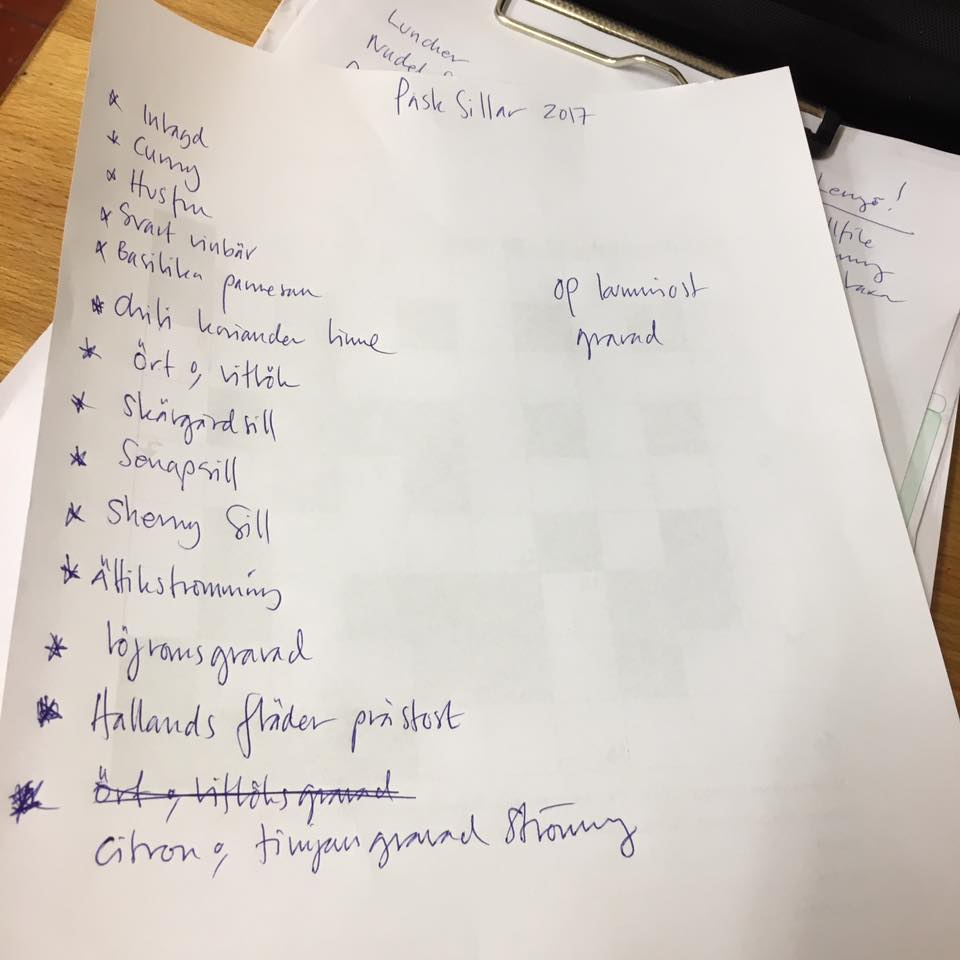 Luncher
Nudel
Påsk Sillar 2017
* Inlagd
* Curry
* Husfru
* Svart vinbär
* Basilika parmesan
* Chili koriander lime
* Ört o, vitlök
* Skärgårdsill
* Senapsill
* Sherry Sill
* Ättikströmming
* Löjromsgravad
* Hallands fläder prästost
* Ört o, vitlöksgravad
citron o, timjan gravad Strömming
op
gravad